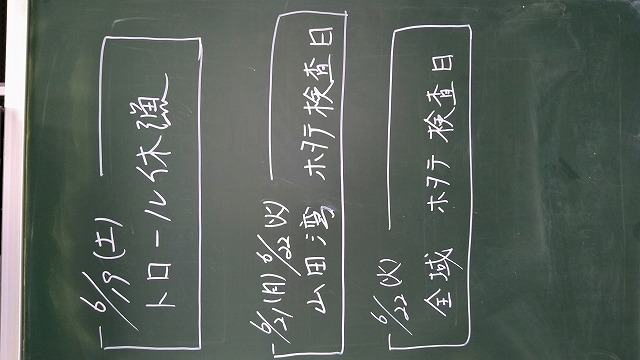 6/19(土)
トロール休漁
6/21(月) 6/22(火)
山田湾 ホタテ検査日
6/22(火)
全域 ホタテ検査日